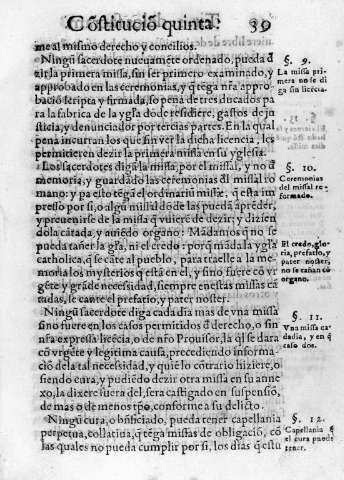 Cōstituciō quinta: 39
me al mismo derecho y concilios.
Ningū sacerdote nueuamēte ordenado, pueda d̄
zir la primera missa, sin ser primero examinado, y
approbado en las ceremonias, y q̄ tēga nr̄a appro-
bació scripta y firmada, so pena de tres ducados pa
ra la fabrica de la ygl̄ia dōde residiere, gastos de ju
sticia, y denunciador por tercias partes. En la qual
pena incurran los que sin ver la dicha licencia, les
permitieren dezir la primera missa en su yglesia.
Los sacerdotes digā la missa, por el missal, y no d̄
memoria, y guardādo las ceremonias dl̄ missal ro
mano: y pa ello tēgā el ordinariū missæ, q̄ esta im
presso por si, o algū missal dōde las puedā aprēder,
y preuenirse de la missa q̄ vuierē de dezir; y dizien
dola cātada, y auiēdo organo: Mādamos q̄ no se
pueda tañer la gl̄a, ni el credo: porq̄ māda la ygl̄ia
catholica, q̄ se cāte al pueblo, para traelle a la me-
moria los mysterios q̄ està en el, y sino fuere cō vr
gēte y grāde necessidad, siempre en estas missas cā
tadas, se cante el prefatio, y pater noster.
Ningū sacerdote diga cada dia mas de vna missa
sino fuere en los casos permitidos d̄ derecho, o sin
nr̄a expressa licēcia, o de nr̄o Prouisor, la ql̄ se dara
cō vrgēte y legitima causa, precediendo informa-
ciō de la tal necessidad, y quiē lo contrario hiziere, o
siendo cura, y pudiēdo dezir otra missa en su anne
xo, la dixere fuera del, sera castigado en suspensiō,
de mas o de menos tp̄o, conforme a su delicto.
Ningū cura, o b̄ficiado, pueda tener capellania
perpetua, collatiua, q̄ tēga missas de obligació, cō
las quales no pueda cumplir por si, los dias q̄ estu
§. 9.
La missa pri
mera no se di
ga sin licēcia.
§. 10.
Ceremonias
del missal re-
formado.
El credo, glo
ria, prefatio, y
pater noster,
no se tañan cō
organo.
§. 11.
Vna missa ca
da dia, y en q̄
caso dos.
§. 12.
Capellania q̄
el cura puede
tener.